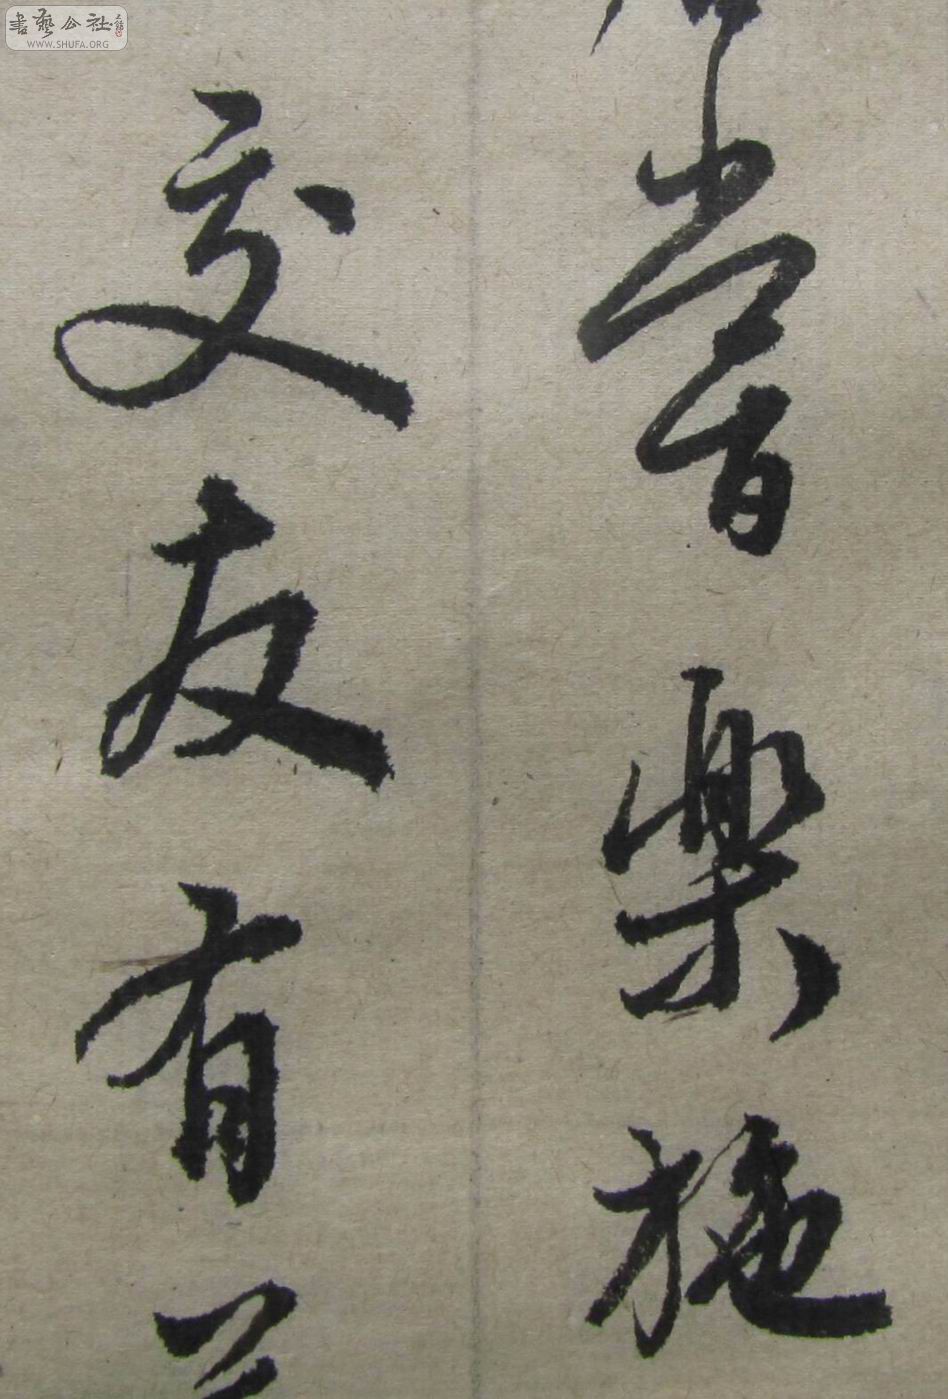 嘗樂施
交友有
書藝公社
WWW.SHUFA.ORG